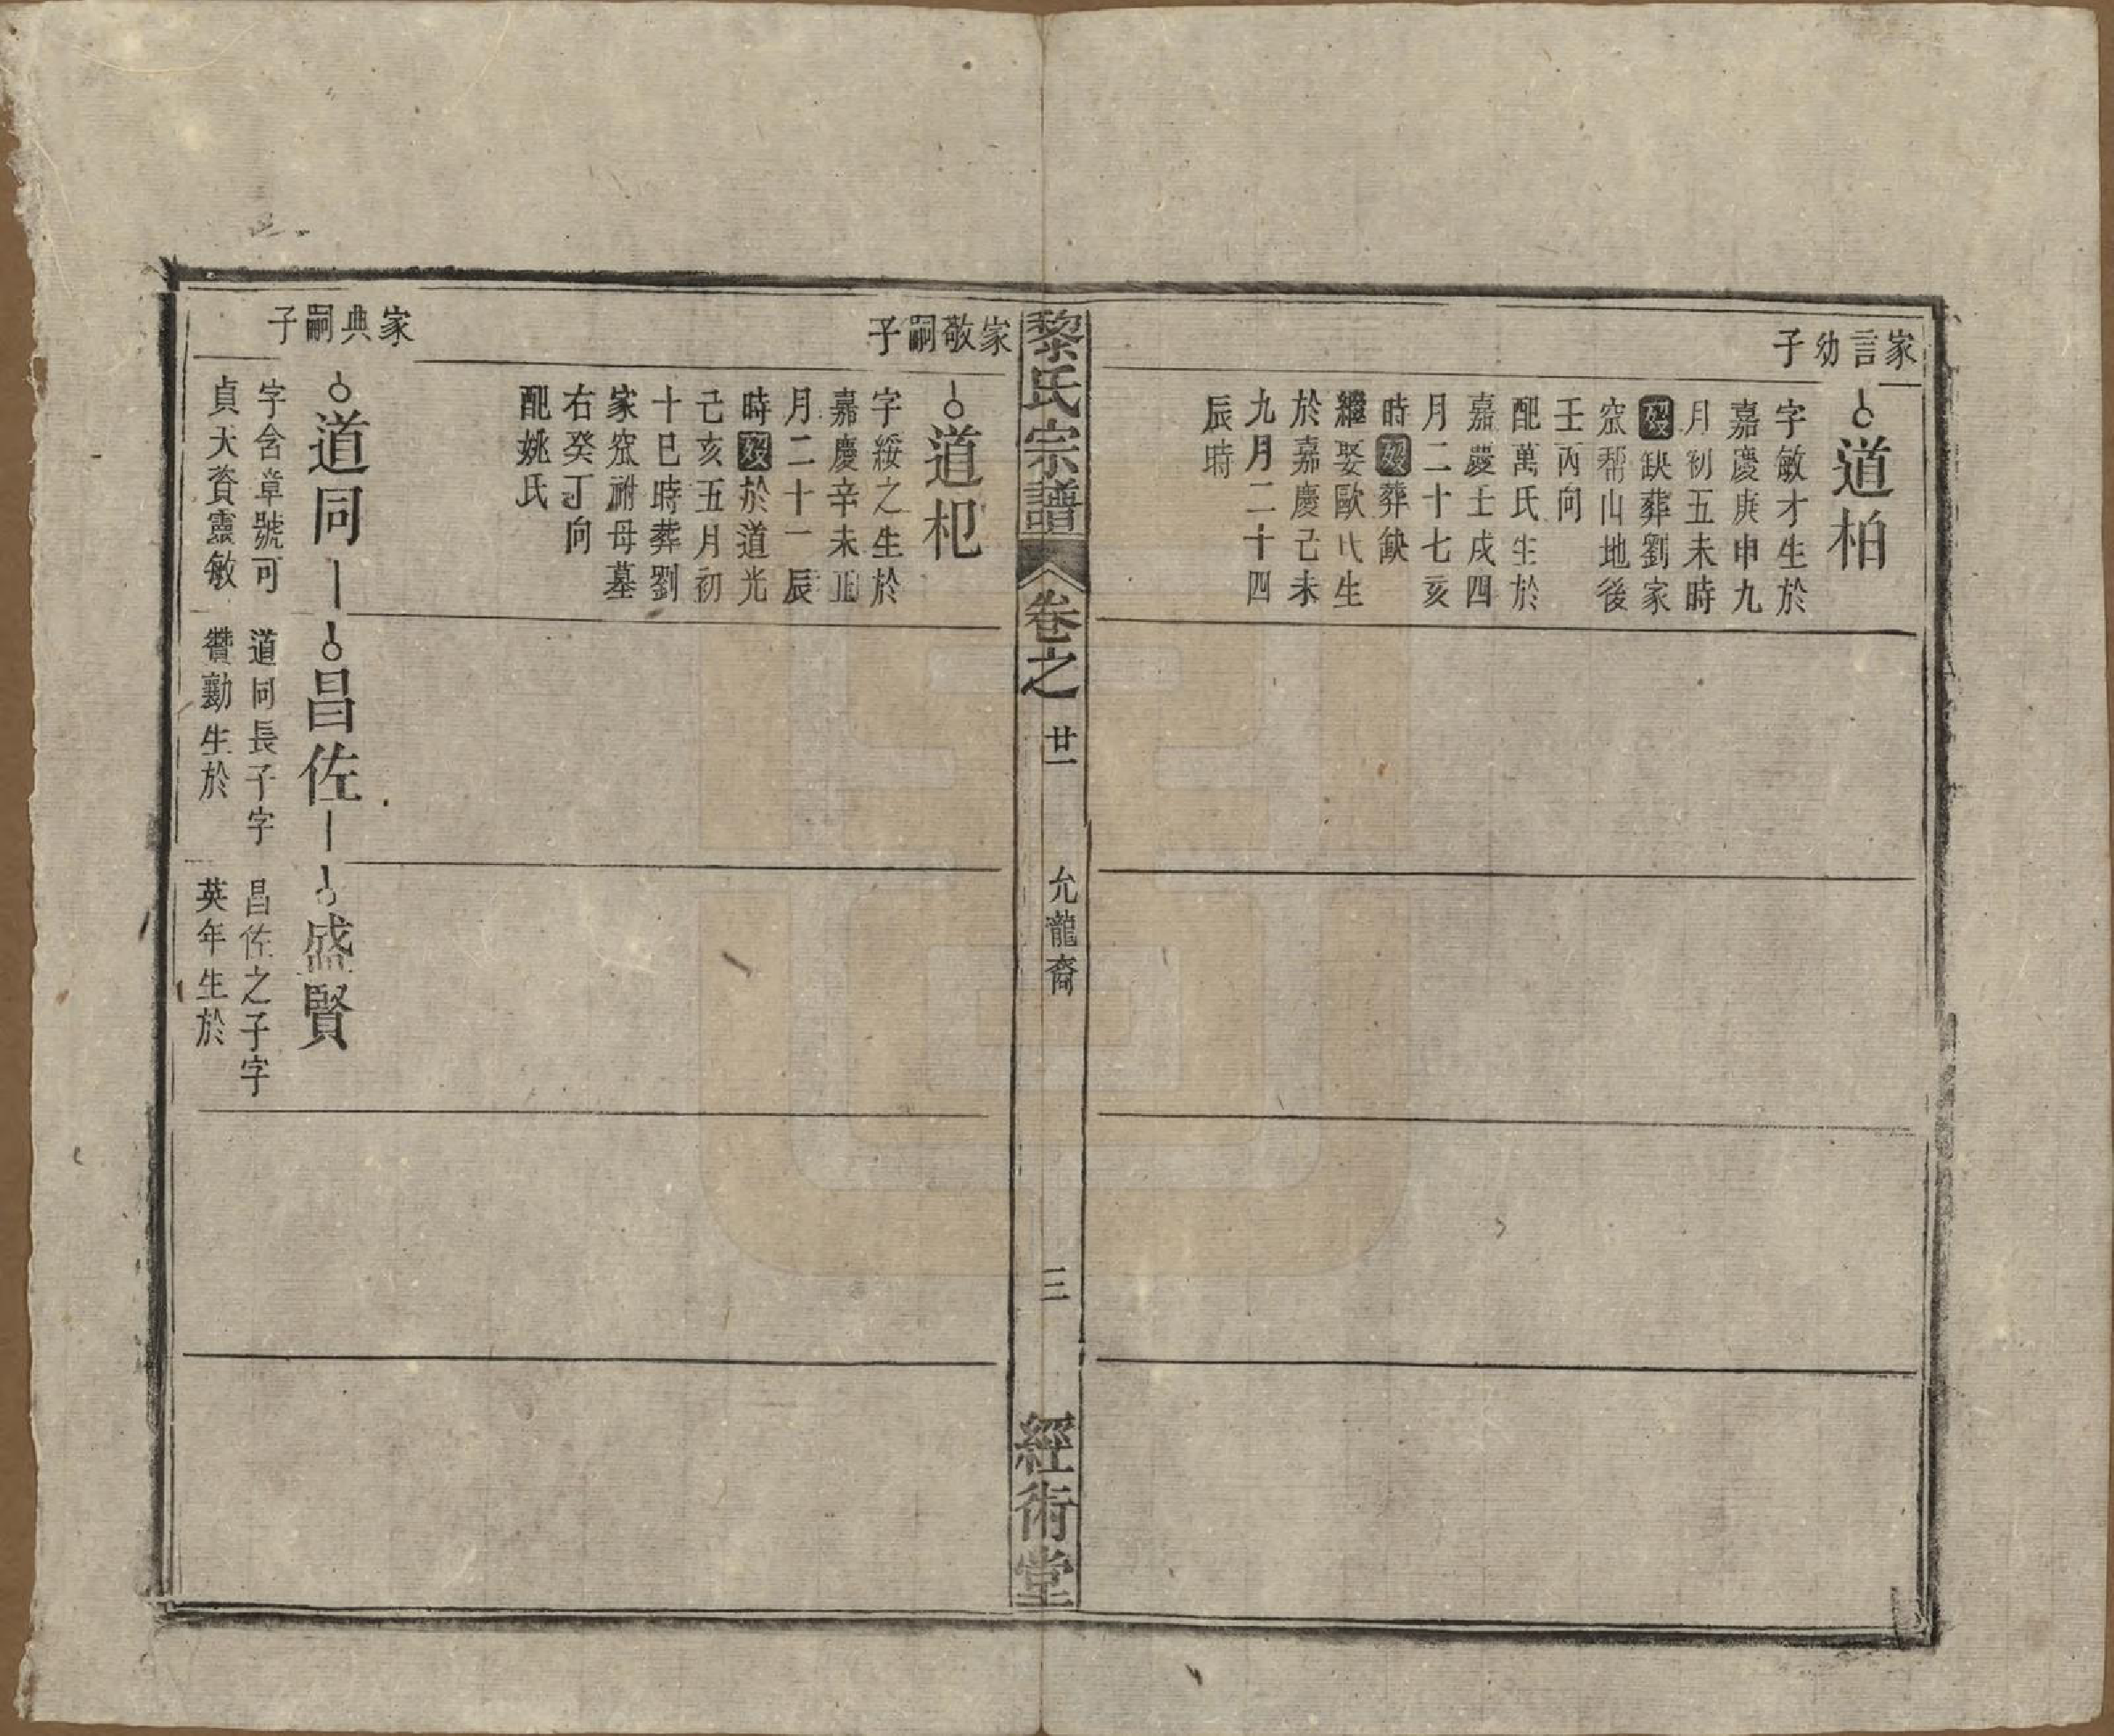 家言幼子
道柏
字敏才生於
嘉慶庚申九
月初五未時
歿缺葬劉家
窊鄰山地後
壬丙向
配萬氏生於
嘉慶壬戌四
月二十七亥
時歿葬缺
繼娶歐氏生
於嘉慶己未
九月二十四
辰時
黎氏宗譜
卷之
廿一
允龍裔
三
經術堂
家敬嗣子
道杞
字綏之生於
嘉慶辛未正
月二十一辰
時歿於道光
己亥五月初
十巳時葬劉
家窊祔母墓
右癸丁向
配姚氏
家典嗣子
道同
字含章號可
貞天資靈敏
昌佐
道同長子字
贊勷生於
盛賢
昌佐之子字
英年生於